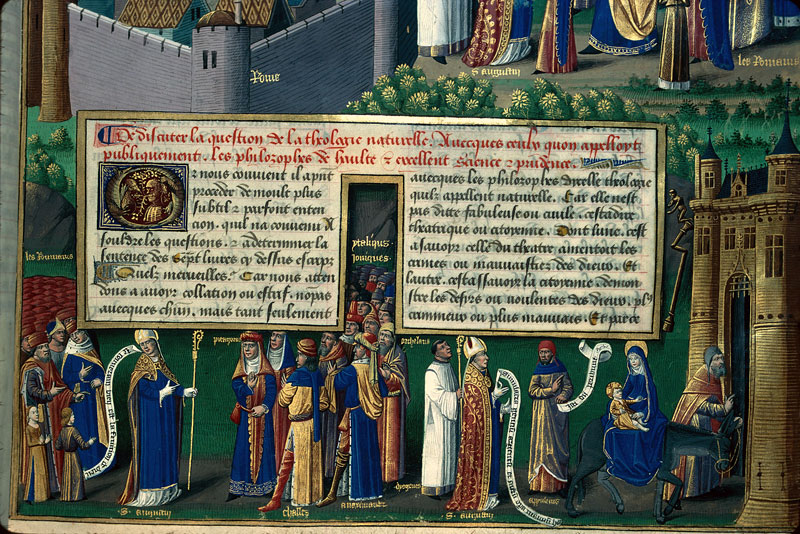 Rome
S augustin
les Rommains
De discuter la question de la theologie naturelle. Avecques ceulx quon appelloyt
publiquement. les philozophes de haulte & excellent science & prudence.
Or nous convient il apnt
proceder de moult plus
subtil & parfont enten
cion. qui na convenu A
souldre les questions. & a determiner la
sentence des sept livres cy dessus escrips
Quelz merveilles. Car nous atten
dons a avoir collation ou estrif. nopas
avecques chun. mais tant seulement
avecques les philozophes dicelle theologie
quilz appellent naturelle. Car elle nest
pas ditte fabuleuse ou civile. cestadire
theatrique ou citoyenne. Dont lune. cest
assavoyr celle du theatre amentoit les
crimes ou mauvaistiez des dieux. Et
lautre. cestassavoyr la citoyenne demon
stre les desirs ou voulentes des dieux. plus
crimineux ou plus mauvais. Et par ce
ytaliques
Joniques
les Rommains
S. augustin
thalles
anaximandre
diogenes
S augustin